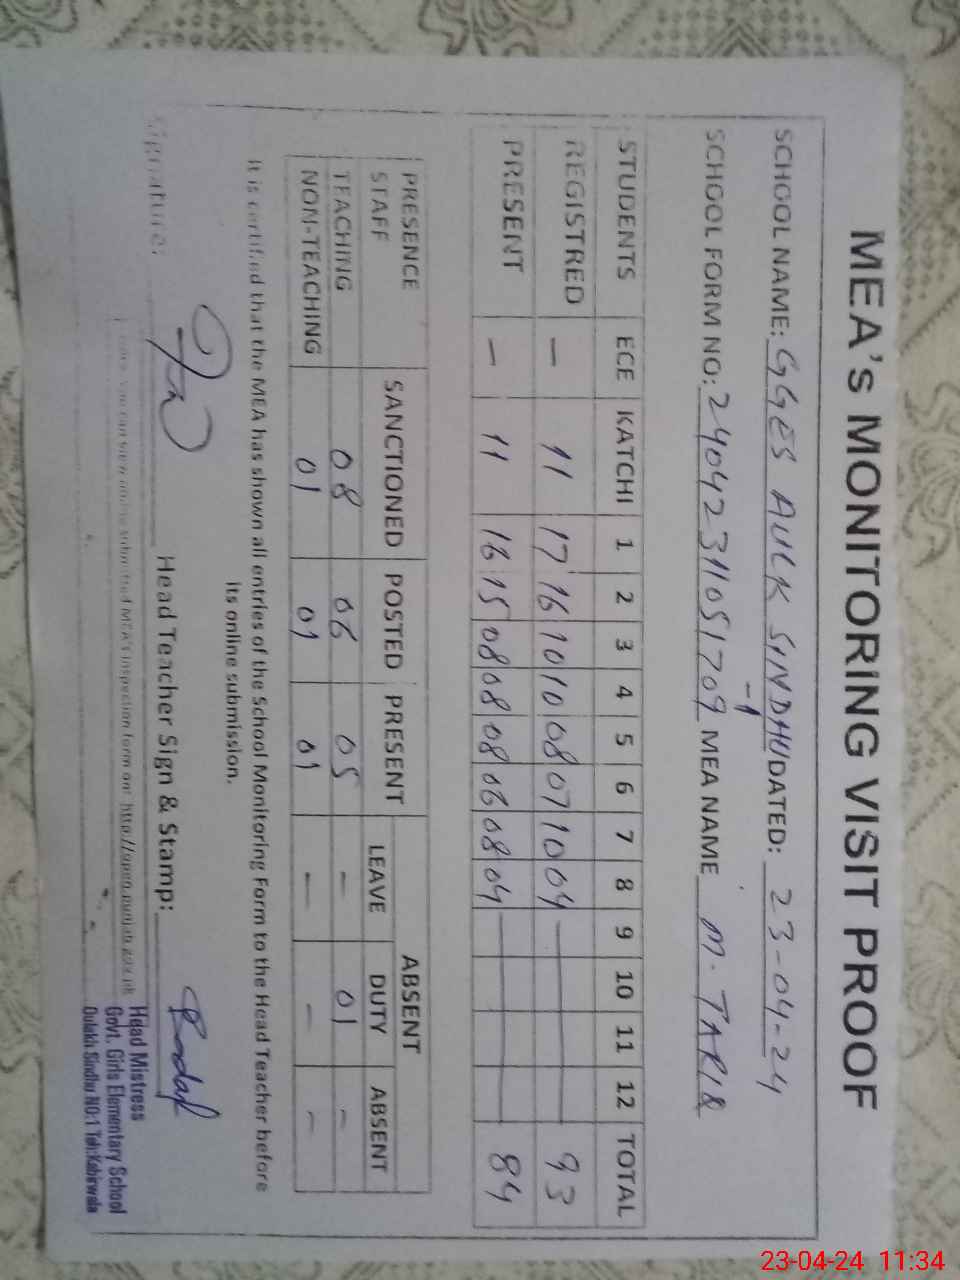 MEA's MONITORING VISIT PROOF
SCHOOL NAME: GGES AULK SINDHU -1 DATED: 23-04-24
SCHOOL FORM NO: 24042311051709 MEA NAME M. TARIQ
STUDENTS ECE KATCHI 1 2 3 4 5 6 7 8 9 10 11 12 TOTAL
REGISTRED — 11 17 16 10 10 08 07 10 04 — 93
PRESENT — 11 16 15 08 08 08 06 08 04 — 84
PRESENCE STAFF SANCTIONED POSTED PRESENT ABSENT
LEAVE DUTY ABSENT
TEACHING 08 06 05 — 01 —
NOM-TEACHING 01 01 01 — — —
It is certified that the MEA has shown all entries of the School Monitoring Form to the Head Teacher before
its online submission.
Signature: Head Teacher Sign & Stamp:
you can view online submitted MEA's inspection form on: http://open.punjab.gov.pk
Head Mistress
Govt. Girls Elementary School
Dulakh Sindhu NO:1 Teh:Kabirwala
23-04-24 11:34